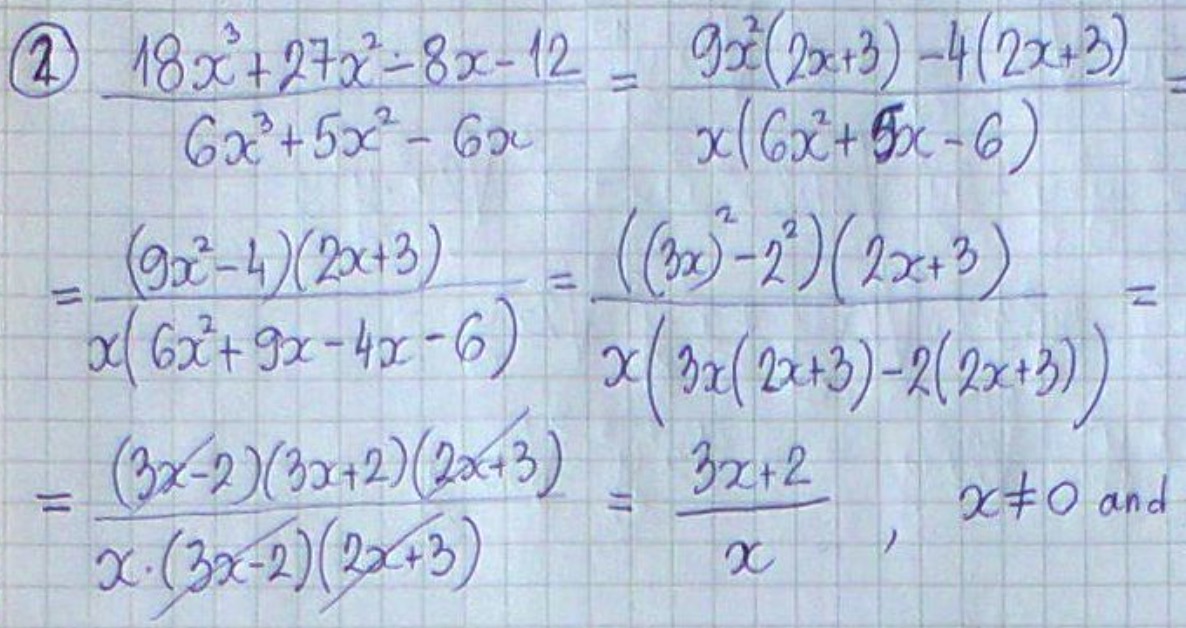 ② (18x³+27x²-8x-12)/(6x³+5x²-6x) = (9x²(2x+3)-4(2x+3))/(x(6x²+5x-6)) =
= ((9x²-4)(2x+3))/(x(6x²+9x-4x-6)) = (((3x)²-2²)(2x+3))/(x(3x(2x+3)-2(2x+3))) =
= ((3x-2)(3x+2)(2x+3))/(x·(3x-2)(2x+3)) = (3x+2)/x , x≠0 and